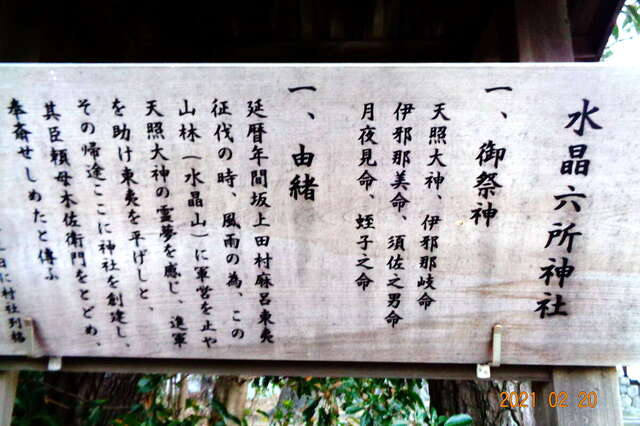 水晶六所神社
一、御祭神
天照大神、伊邪那岐命
伊邪那美命、須佐之男命
月夜見命、蛭子之命
一、由緒
延暦年間坂上田村麻呂東夷
征伐の時、風雨の為、この
山林（水晶山）に軍営を止や
天照大神の霊夢を感じ、進軍
を助け東夷を平げしと、
その帰途ここに神社を創建し、
其臣頼母木佐衛門をとどめ、
奉斎せしめたと傳ふ
日に村社列格
2021 02 20